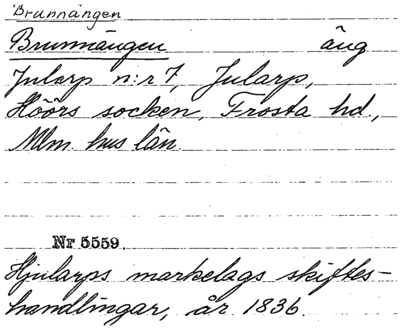 Brunnängen
Brunnängen äng
Jularp n:r 7, Jularp,
Höörs socken, Frosta hd,
Mlm. hus län
Nr 5559.
Hjularps markelags skiftes-
handlingar, år 1836.